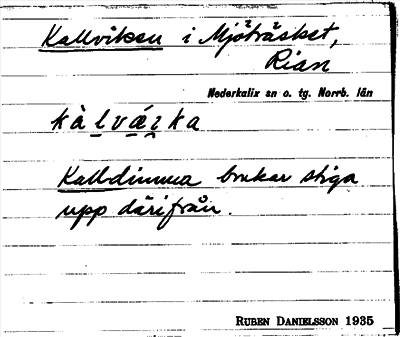 Kallviken i Mjöträsket,
Rian
Nederkalix sn o. tg. Norrb. län
kàlvǽɩka
Kalldimma brukar stiga
upp därifrån.
RUBEN DANIELSSON 1935